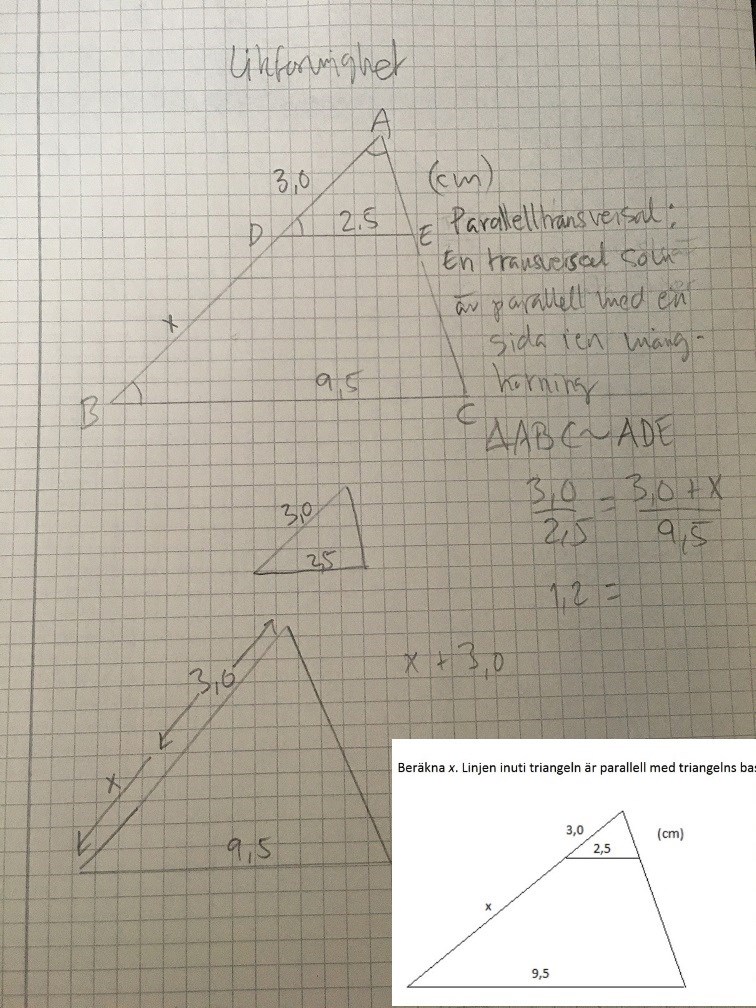 Likformighet
A
3,0
(cm)
D
2,5
E
Parallelltransversal:
En transversal som
är parallell med en
sida i en mång-
hörning
x
9,5
B
C
ΔABC~ADE
3,0/2,5 = 3,0+x/9,5
1,2 =
3,0
2,5
x + 3,0
3,0
x
9,5
Beräkna x. Linjen inuti triangeln är parallell med triangelns bas
3,0
(cm)
2,5
x
9,5